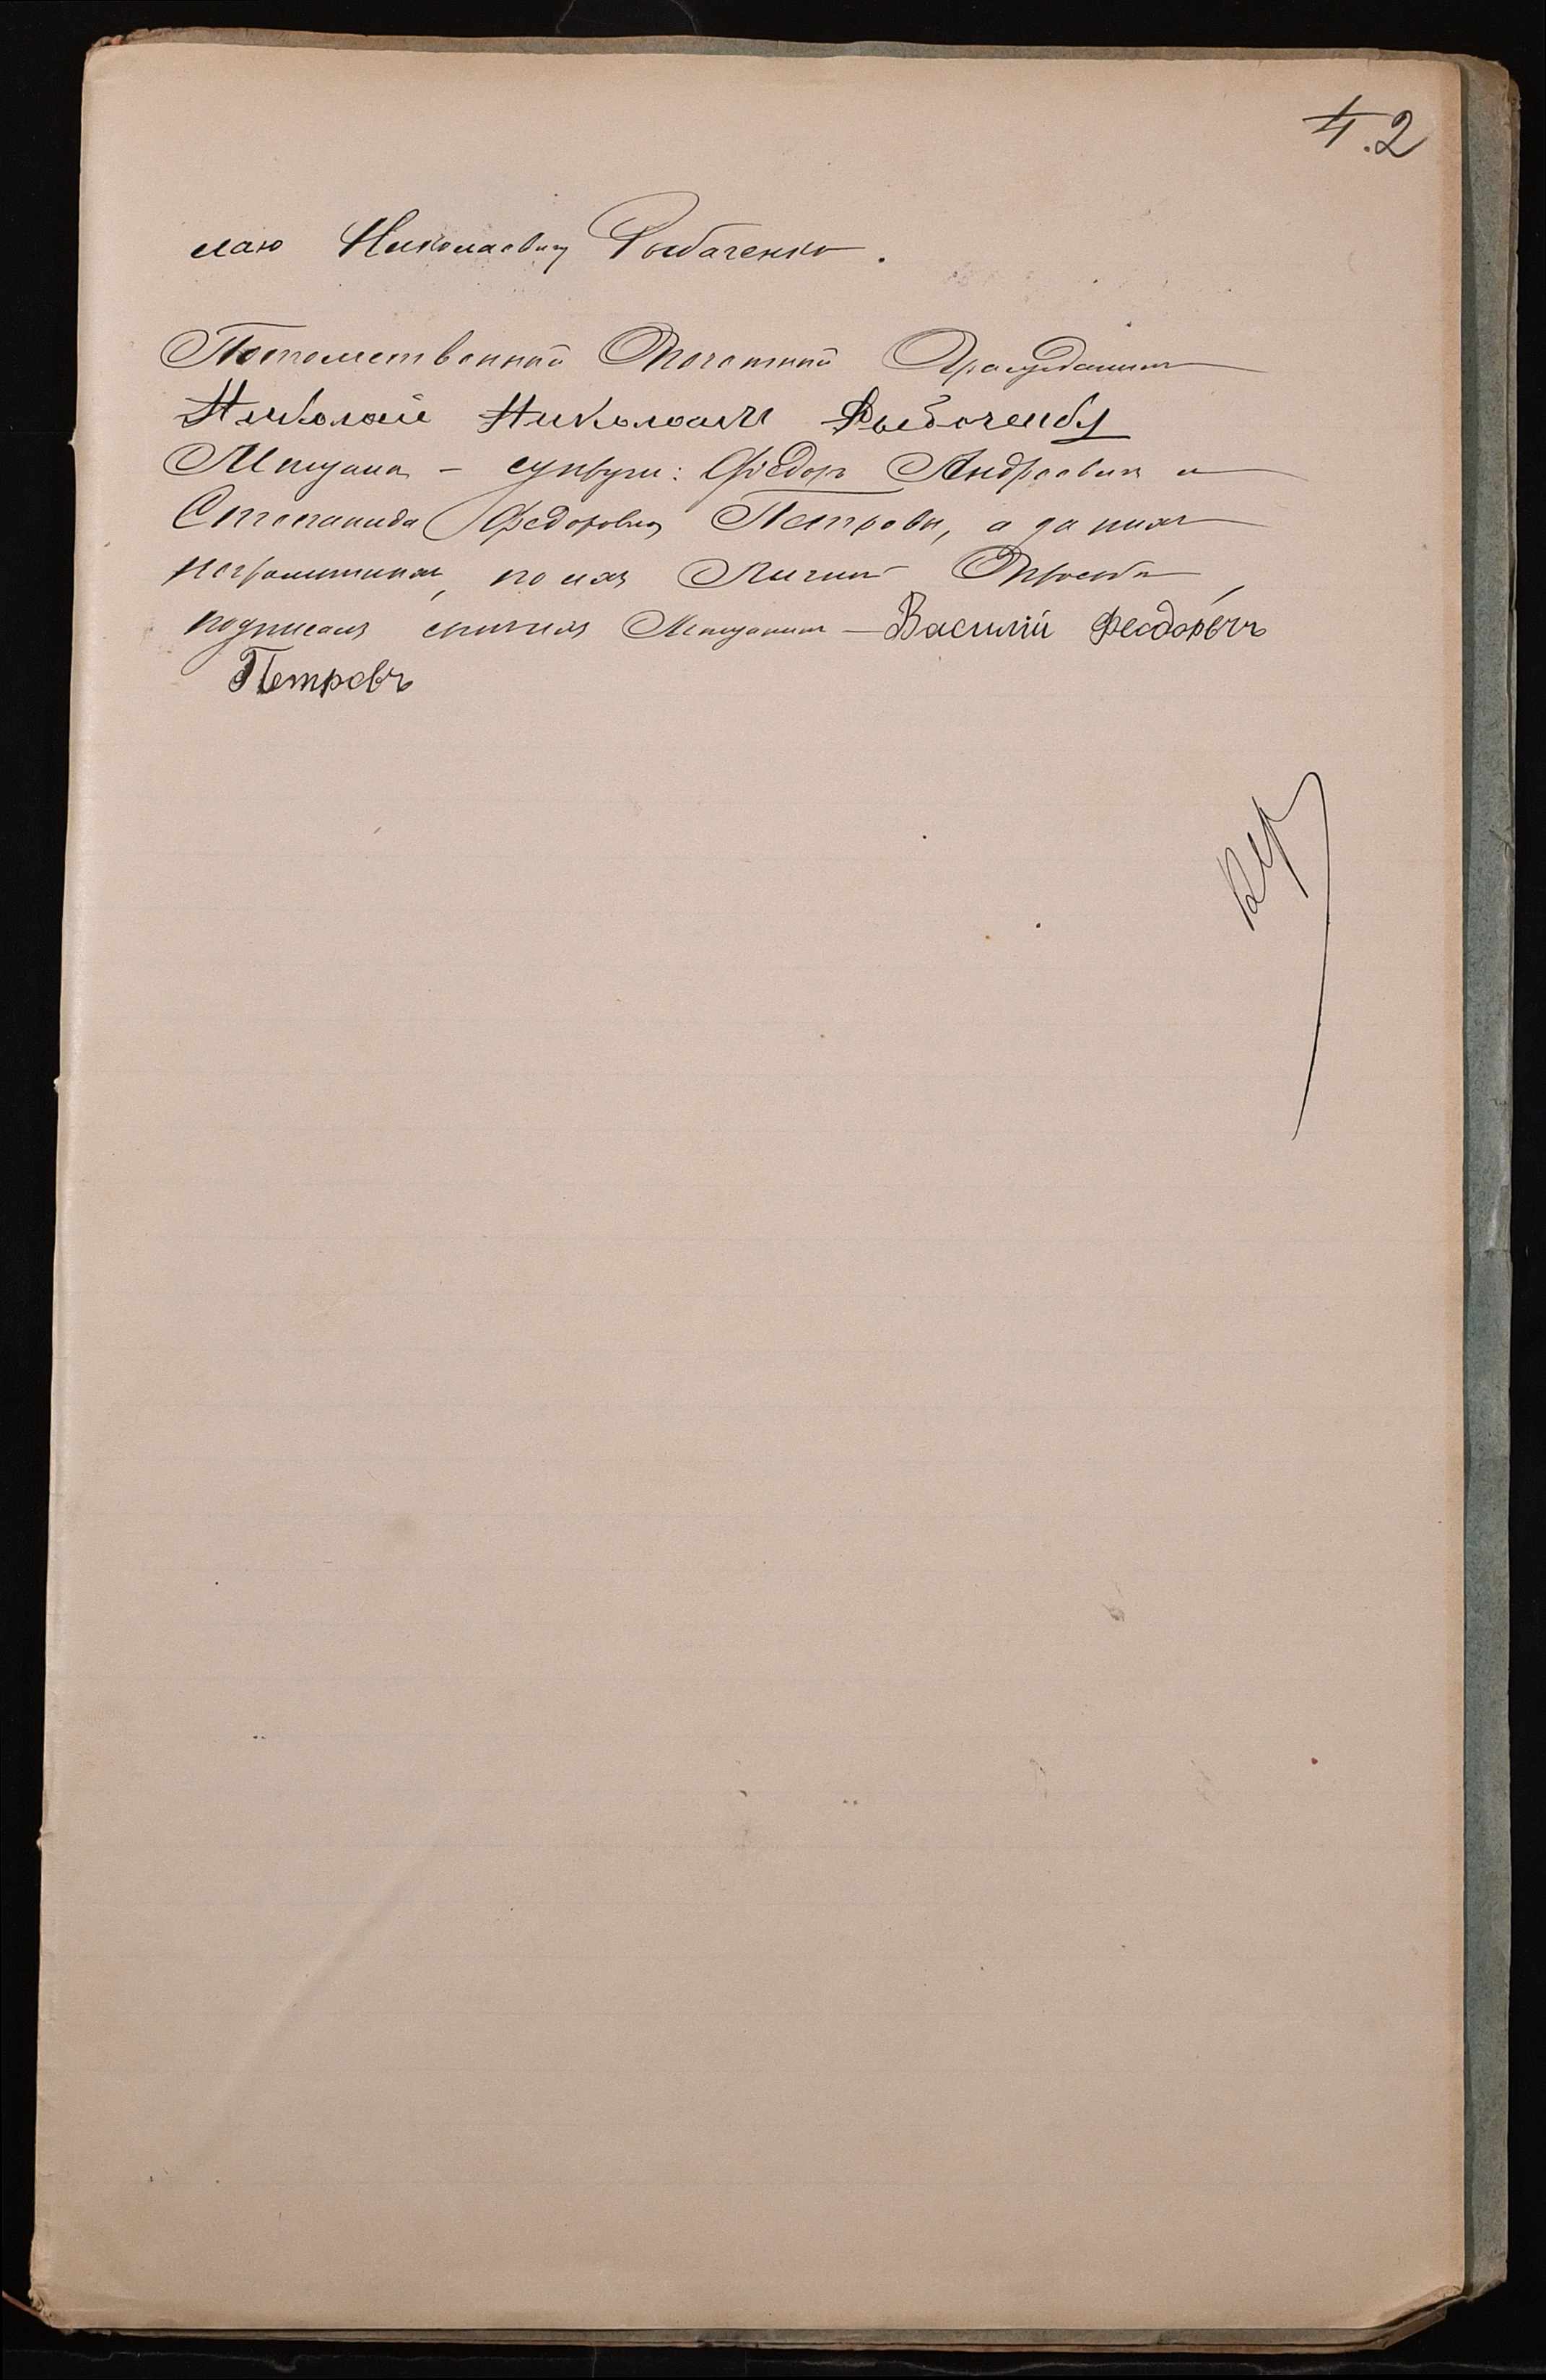 4.2
лаю Николаевичу Рыбаченко.
Потомственный Почетный Гражданинъ
Николай Николаевъ Рыбаченко
Мещане - супруги: Фёдоръ Андреевичъ и
Степанида Федоровна Петровы, а за нихъ
неграмотныхъ, по ихъ Личной Просьбѣ,
подписался сынъ ихъ Мещанинъ - Василій Феодорычъ
Петровъ